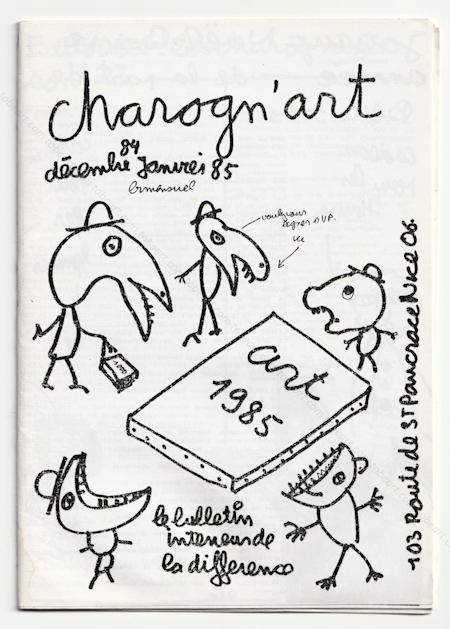 charogn'art
84
décembre Janvier 85
bimensuel
voulez vous
signer SVP.
ici
art
1985
le bulletin
interieur de
la différence
103 Route de ST Pancrace Nice 06.